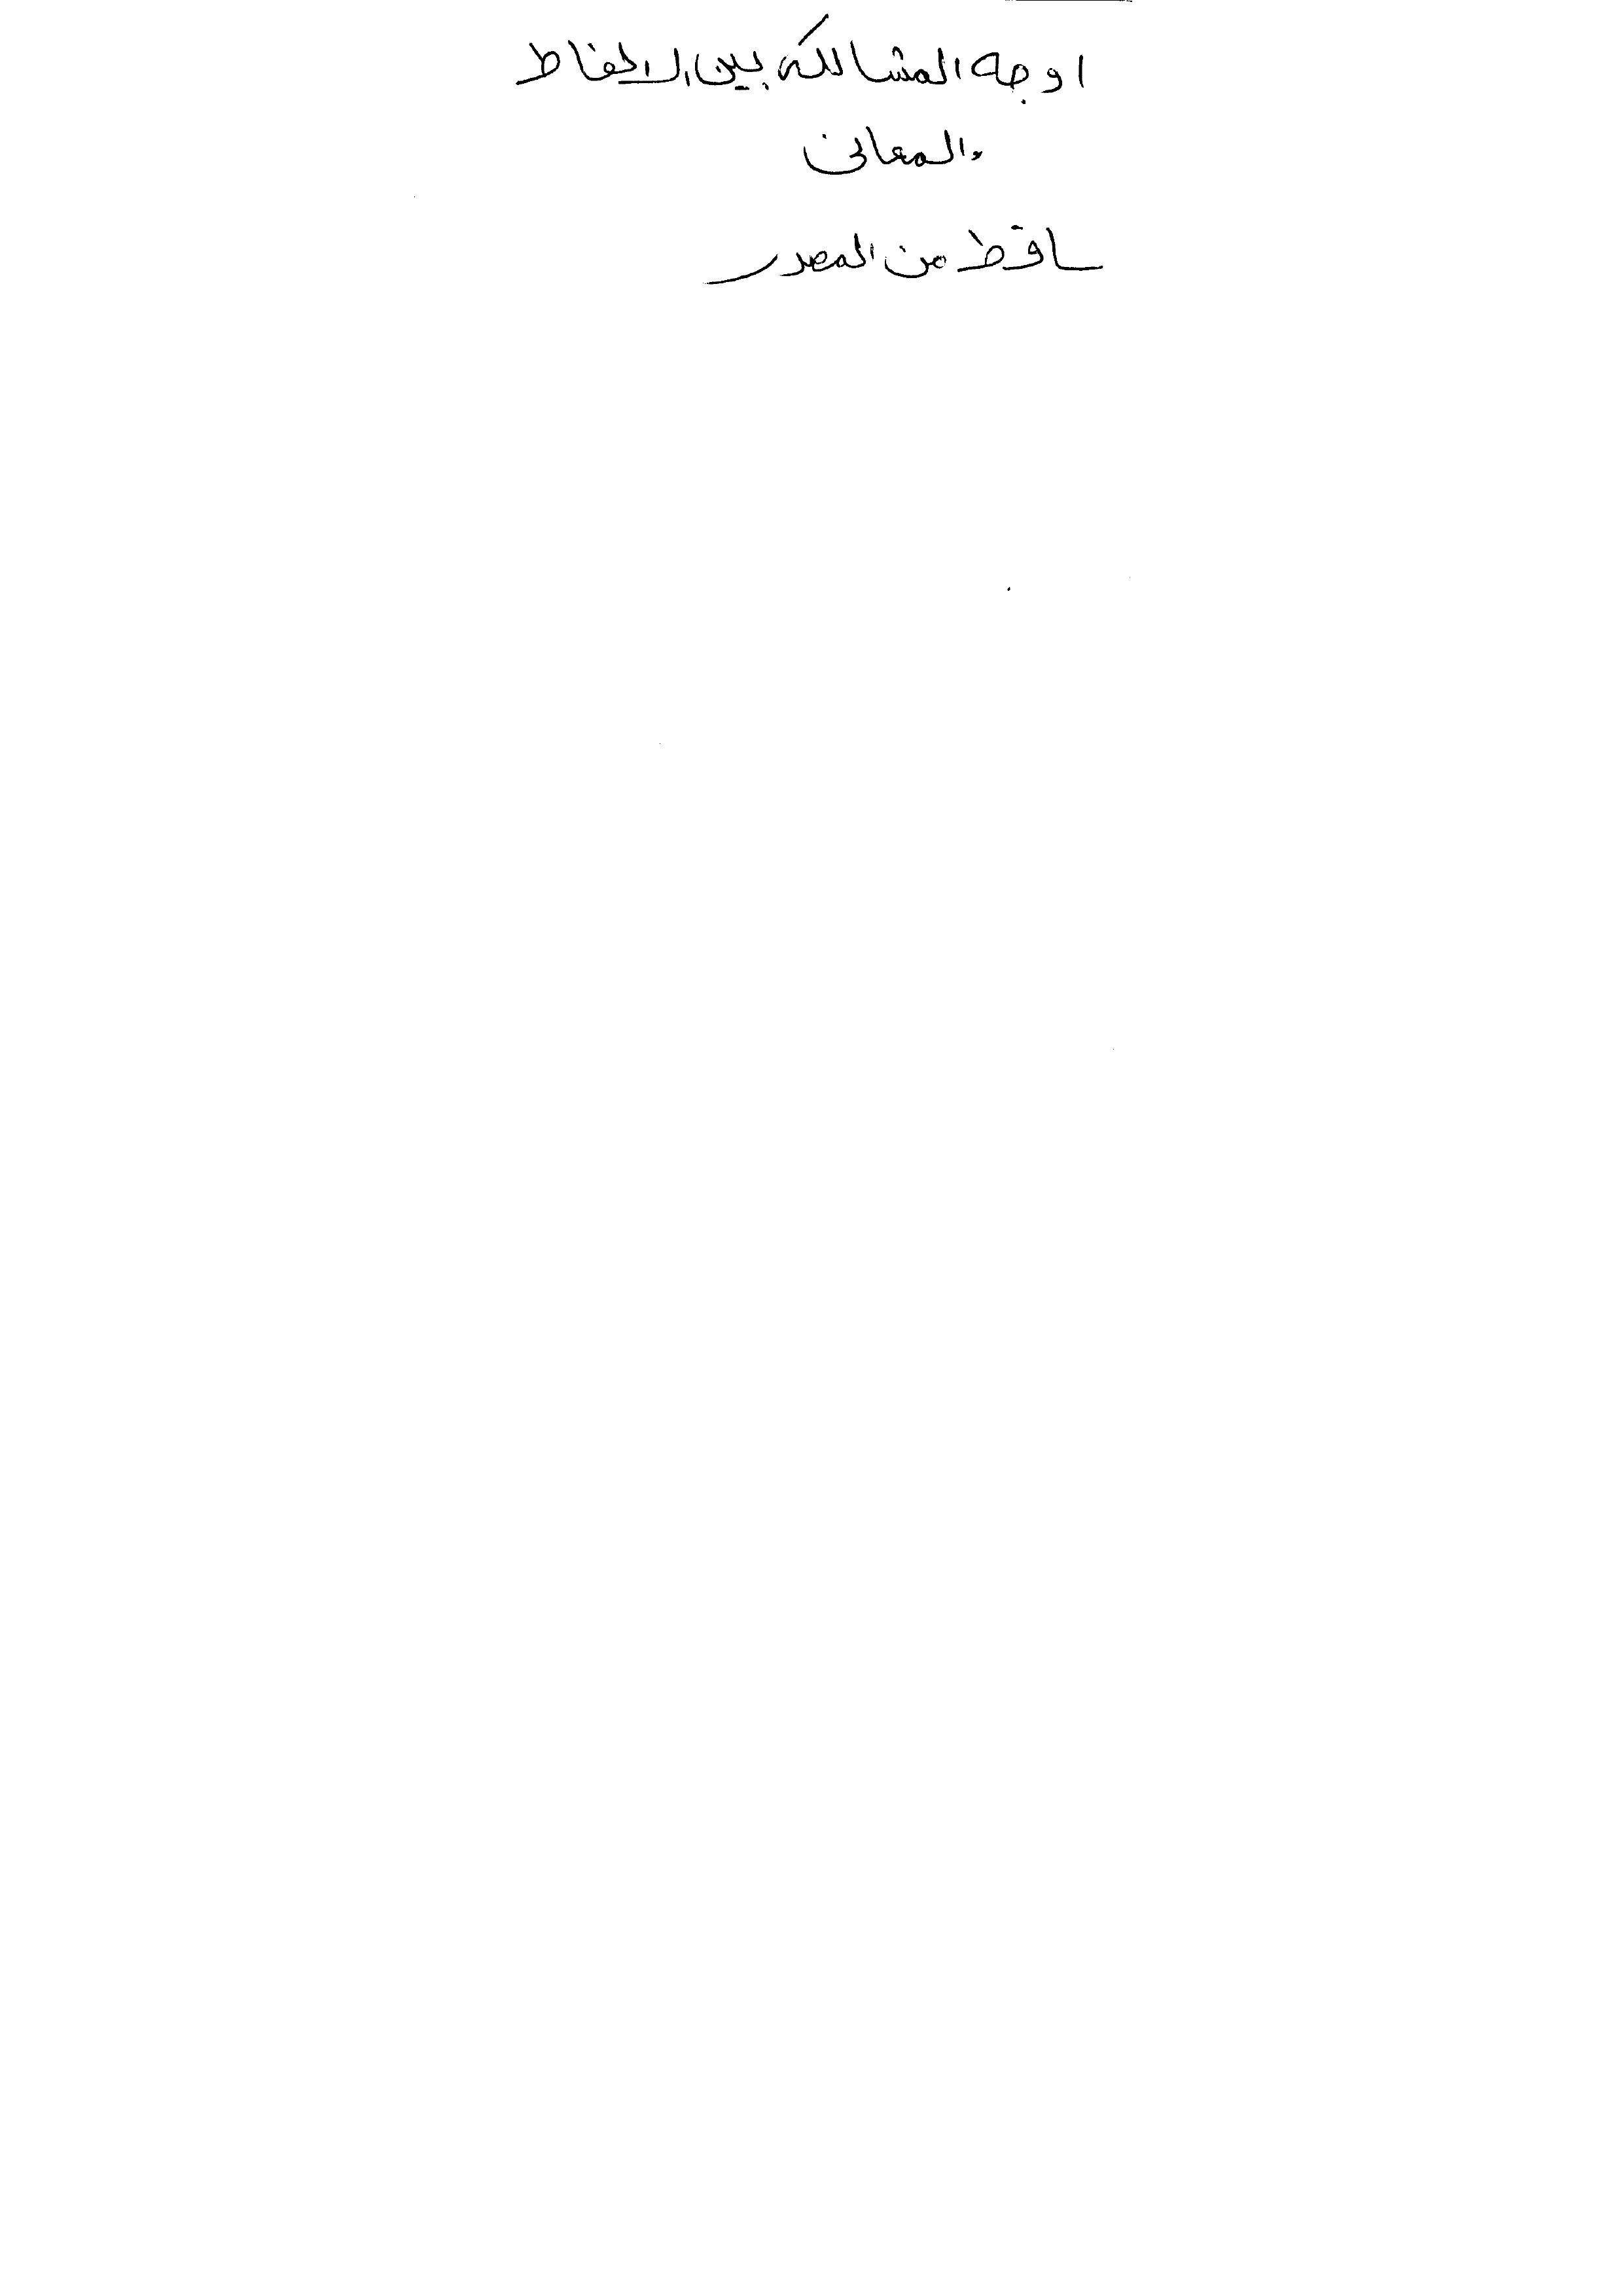 اوجه المشاكله بين الالفاظ
والمعانى
ساقط من المصدر